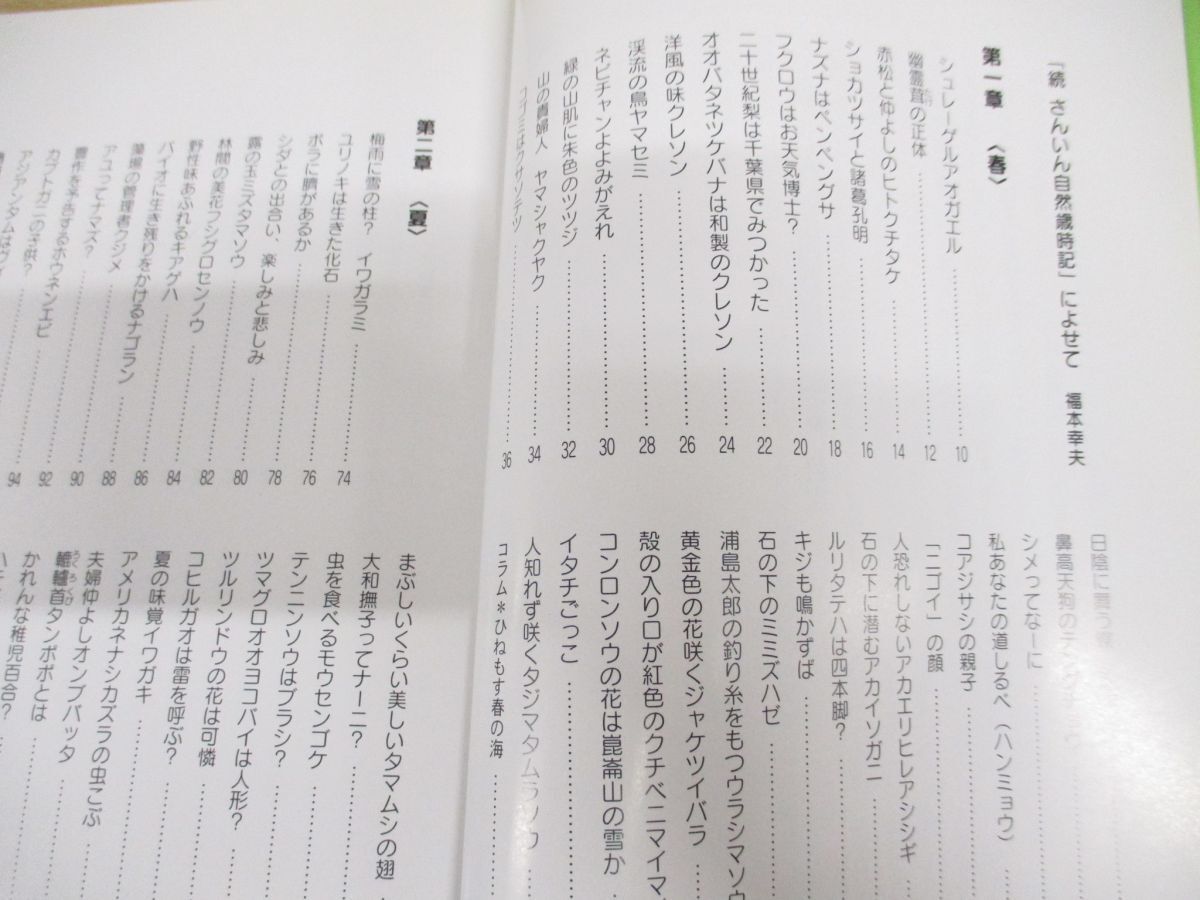 「続 さんいん自然歳時記」によせて　福本幸夫
第一章〈春〉
シュレーゲルアオガエル 10
幽霊茸の正体 12
赤松と仲よしのヒトクチタケ 14
ショカツサイと諸葛孔明 16
ナズナはペンペングサ 18
フクロウはお天気博士？ 20
二十世紀梨は千葉県でみつかった 22
オオバタネツケバナは和製のクレソン 24
洋風の味クレソン 26
渓流の鳥ヤマセミ 28
ネビチャンよよみがえれ 30
緑の山肌に朱色のツツジ 32
山の貴婦人 ヤマシャクヤク 34
コゴミはクサソテツ 36
日陰に舞う
鼻高天狗のテング
シメってなーに
私あなたの道しるべ（ハンミョウ）
コアジサシの親子
「ニゴイ」の顔
人恐れしないアカエリヒレアシシギ
石の下に潜むアカイソガニ
ルリタテハは四本脚？
キジも鳴かずば
石の下のミミズハゼ
浦島太郎の釣り糸をもつウラシマソウ
黄金色の花咲くジャケツイバラ
殻の入り口が紅色のクチベニマイマ
コンロンソウの花は崑崙山の雪か
イタチごっこ
人知れず咲くタジマタムラソウ
コラム＊ひねもす春の海
第二章〈夏〉
梅雨に雪の柱？ イワガラミ 74
ユリノキは生きた化石 76
ボラに臍があるか 76
シダとの出合い、楽しみと悲しみ 78
露の玉ミズタマソウ 80
林間の美花フシグロセンノウ 82
野性味あふれるキアゲハ 84
バイオに生き残りをかけるナゴラン 86
藻場の管理者クジメ 88
アユってナマズ？ 88
豊作を予告するホウネンエビ 90
カブトガニの子供？ 92
アジアンタムは 94
まぶしいくらい美しいタマムシの翅
大和撫子ってナーニ？
虫を食べるモウセンゴケ
テンニンソウはブラシ？
ツマグロオオヨコバイは人形？
ツルリンドウの花は可憐
コヒルガオは雷を呼ぶ？
夏の味覚イワガキ
アメリカネナシカズラの虫こぶ
夫婦仲よしオンブバッタ
轆轤首タンポポとは
かれんな稚児百合？